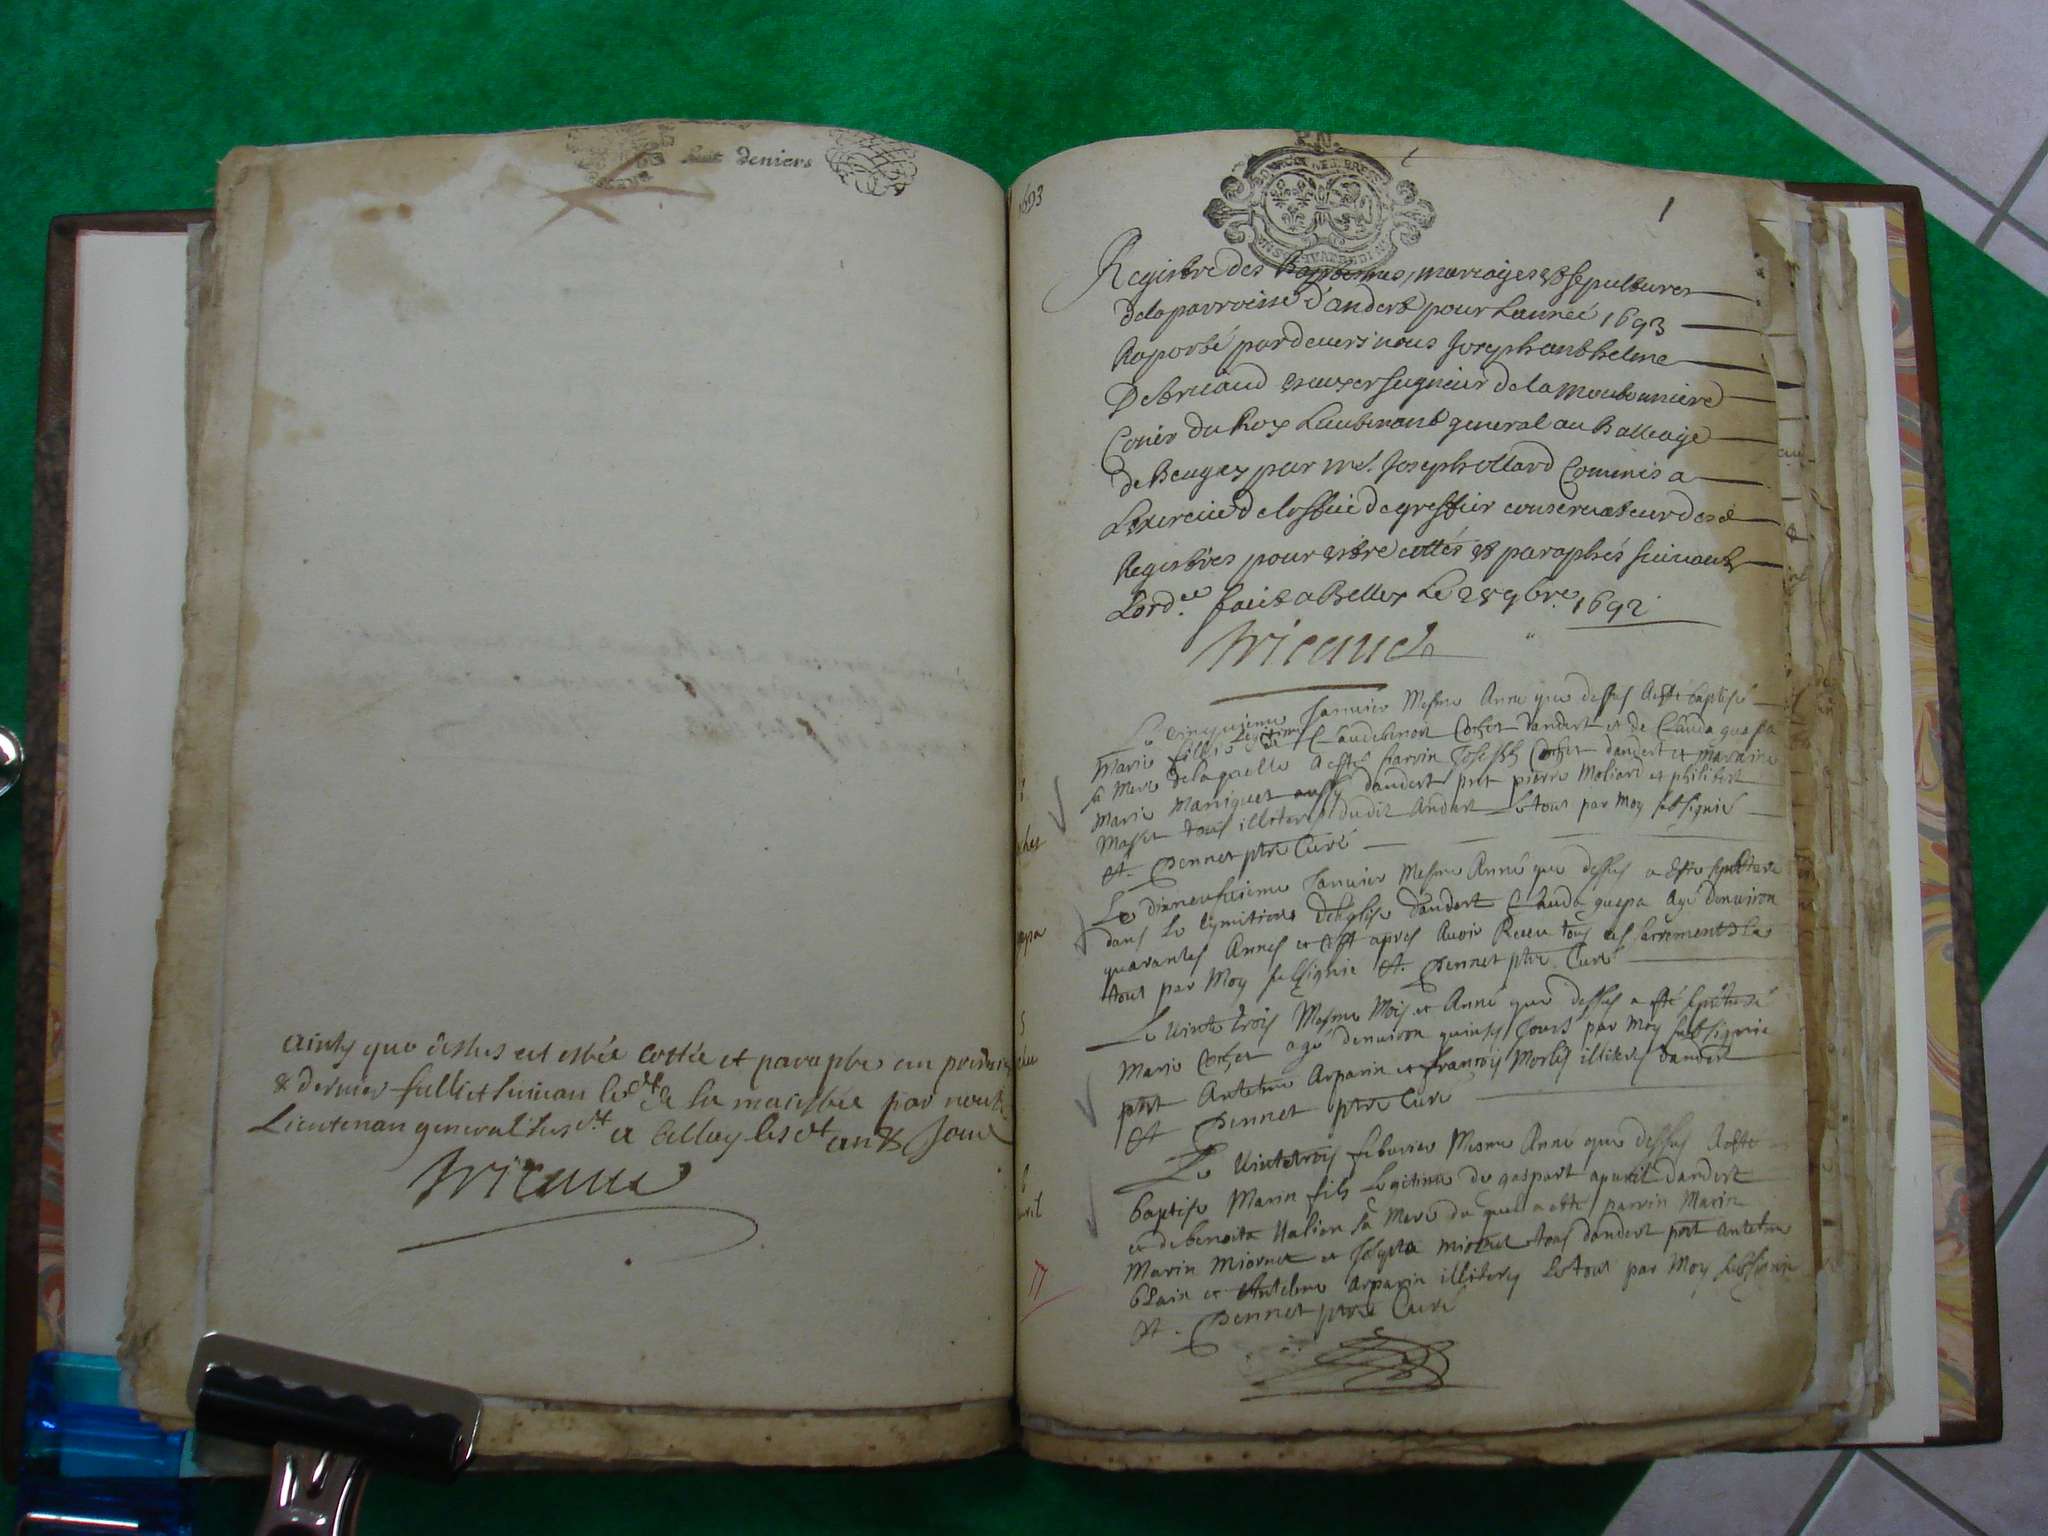 deniers
ainsy que dessus est estée cottée et paraphée au premier
& dernier fulliet suivan led. de la
Lieutenan general susd.t a Belley les d.t an & Jour
Tricaud
1693
1
Registre des Baptesmes, mariages et sepultures
de la parroisse d'andert pour l'année 1693
Raporté pardevers nous Joseph anthelme
De tricaud escuyer seigneur de la
Coner du Roy Lieutenant general au Balliage
de Beugey par me. Joseph ollard Commis a
L'exercice de l'office de greffier conservateur desd
Registres pour estre cottés et paraphés suivant
Lord.ce faict a Belley Le 28 9bre. 1692
Tricaud
Le cinquieme Janvier Mesme Anné que dessus a esté baptisé
Marie fillie Legitime Claude benoit Cochet dandert et de Clauda guapa
sa Mere de laquelle a esté parrin Joseph Cochet dandert et maraine
Marie Marriguet aussy dandert pnt pierre Moliard et philibert
Masset tous illiteres dudit Andert Le tout par Moy subsigné
A. Pennet ptre Curé
Le dixneufvieme Janvier Mesme Anné que dessus a esté sepulturé
dans Le cymitiere deglise dandert Clauda guapa agé denviron
quarantes Annes et cest apres Avoir Receu tous ces sacrements Le
tout par Moy subsigné A. Pennet ptre Curé
Le Vinte trois Mesme Mois et Anné que dessus a esté sepulturé
Marie Cochet agé denviron quinse Jours par Moy subsigné
pnt Antelme Arparin et francois Morlis illiteres dandert
A Pennet ptre Curé
Le Vintetrois febvrier Mesme Anné que dessus A esté
baptise Marin fils Legitime de gaspart apvril dandert
et de benoita Valion sa Mere du quel a esté parrin Marin
Marin Miornet et Josepta Miornet tous dandert pnt Antelme
blain et Antelme Arparin illiteres Le tout par Moy subsigné
A. Pennet ptre Curé
17